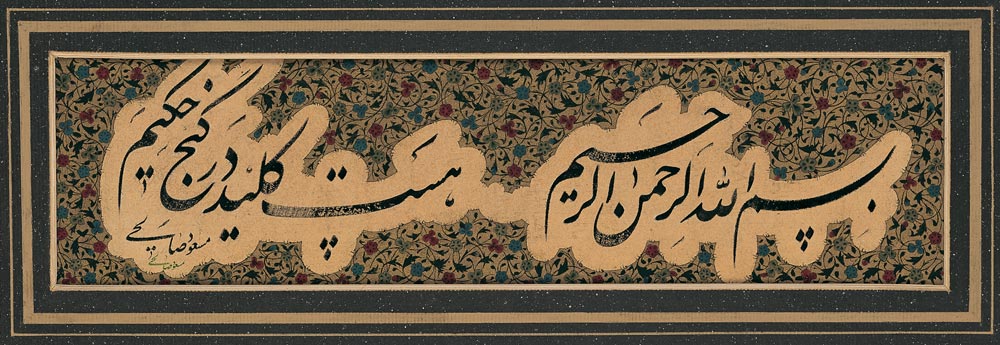 بسم الله الرحمن الرحیم
هست کلید در گنج حکیم
مسعود صالحی